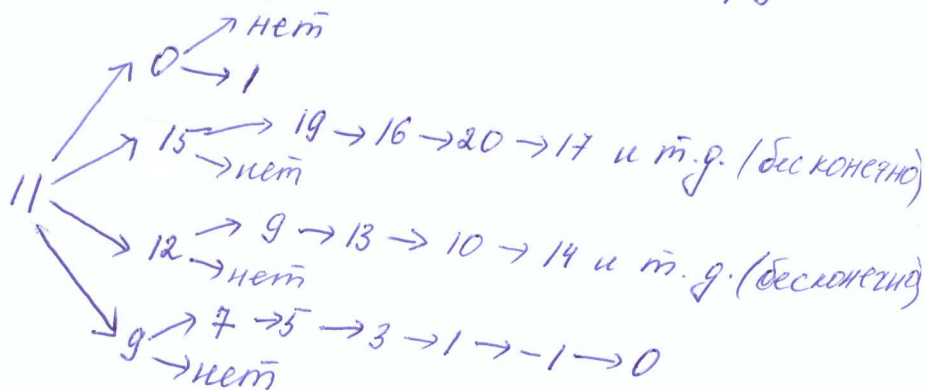 нет
0
1
15 → 19 → 16 → 20 → 17 и т.д. (бесконечно)
нет
11
12 → 9 → 13 → 10 → 14 и т.д. (бесконечно)
нет
9 → 7 → 5 → 3 → 1 → -1 → 0
нет